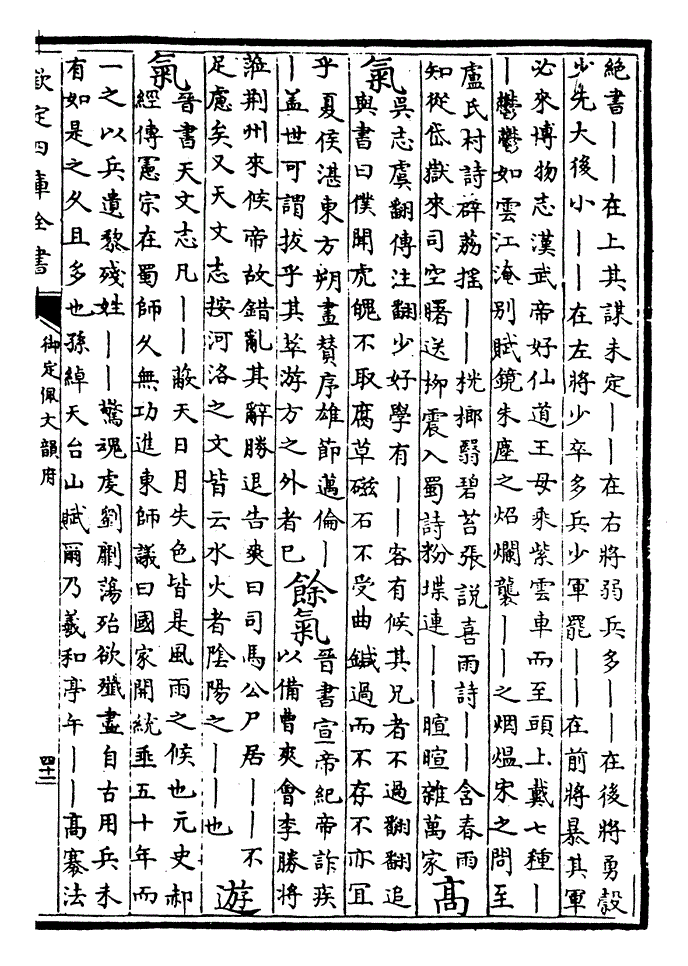 絶書||在上其謀未定||在右將弱兵多||在後將勇榖
少先大後小||在左將少卒多兵少軍罷||在前將暴其軍
必來博物志漢武帝好仙道王母乘紫雲車而至頭上戴七種|
|鬱鬱如雲江淹别賦鏡朱塵之炤爛襲||之烟熅宋之問至
盧氏村詩薜荔揺||桄榔翳碧苔張説喜雨詩||含春雨
知從岱嶽來司空曙送栁震入蜀詩粉堞連||暄暄雜萬家
髙氣
吳志虞翻傳注翻少好學有||客有候其兄者不過翻翻追
與書曰僕聞虎魄不取腐草磁石不受曲鍼過而不存不亦宜
乎夏侯湛東方朔畫贊序雄節邁倫|
|盖世可謂拔乎其萃游方之外者已
餘氣
晉書宣帝紀帝詐疾
以備曹爽會李勝將
涖荆州來候帝故錯亂其辭勝退告爽曰司馬公尸居||不
足慮矣又天文志按河洛之文皆云水火者陰陽之||也
遊氣
晉書天文志凡||蔽天日月失色皆是風雨之候也元史郝
經傳憲宗在蜀師久無功進東師議曰國家開統垂五十年而
一之以兵遺黎殘姓||驚魂虔劉劘蕩殆欲殲盡自古用兵未
有如是之久且多也孫綽天台山賦爾乃羲和亭午||髙褰法
欽定四庫全書
御定佩文韻府
四十二